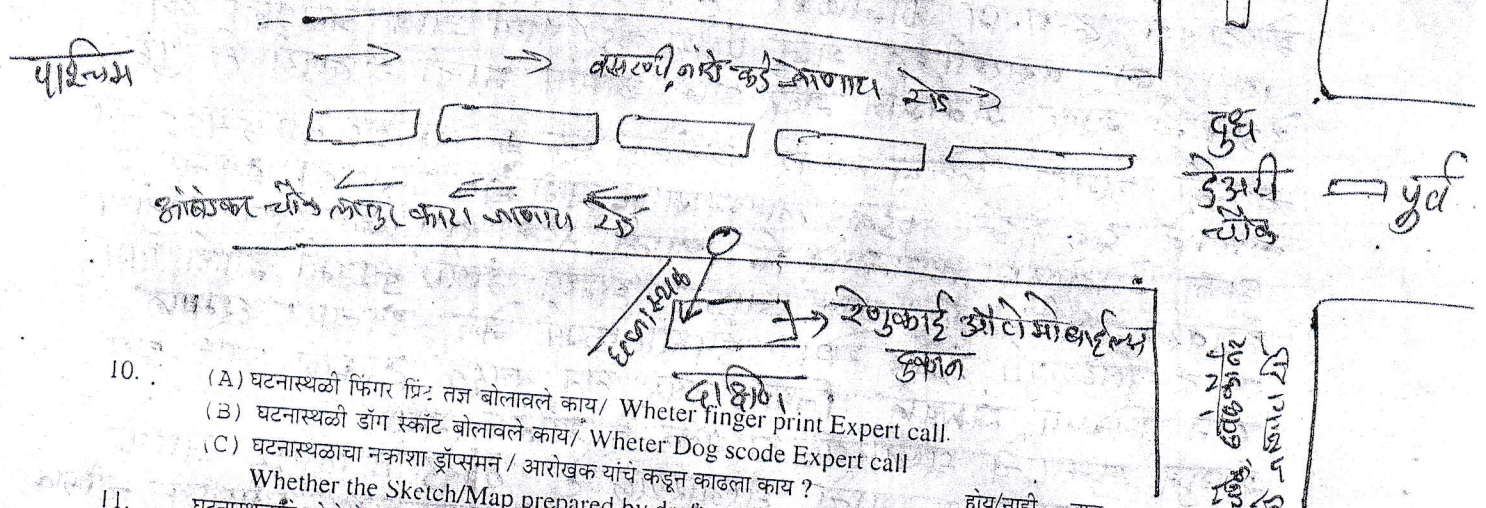 पश्चिम
वसरणी, नांदेड कडे जाणारा रोड
दुध
डेअरी
चौक
पुर्व
आंबेडकर चौक लातुर काटा जाणारा रोड
घटनास्थळ
रेणुकाई ऑटोमोबाईल्स
दुकान
दक्षिण
10.
(A) घटनास्थळी फिंगर प्रिंट तज्ञ बोलावले काय/ Wheter finger print Expert call.
(B) घटनास्थळी डॉग स्कॉट बोलावले काय/ Wheter Dog scode Expert call
(C) घटनास्थळाचा नकाशा ड्रॉप्समन / आरोखक यांचे कडून काढला काय ?
Whether the Sketch/Map prepared by
होय/नाही
11.